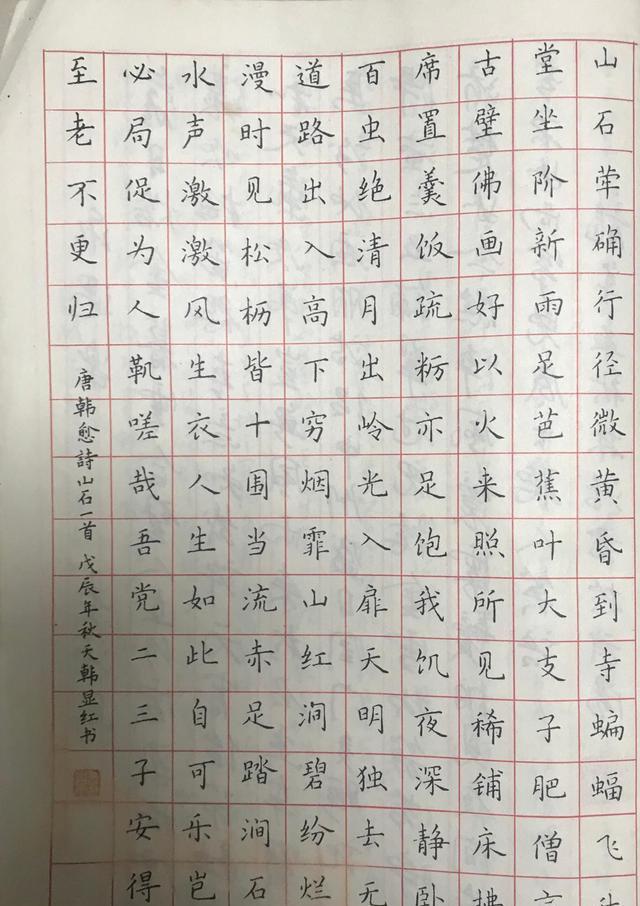 山石荦确行径微黄昏到寺蝙蝠飞
堂坐阶新雨足芭蕉叶大支子肥僧
古壁佛画好以火来照所见稀铺床拂
席置羹饭疏粝亦足饱我饥夜深静卧
百虫绝清月出岭光入扉天明独去无
道路出入高下穷烟霏山红涧碧纷烂
漫时见松枥皆十围当流赤足踏涧石
水声激激风生衣人生如此自可乐岂
必局促为人鞿嗟哉吾党二三子安得
至老不更归
唐韩愈詩山石一首 戊辰年秋天韩显红书